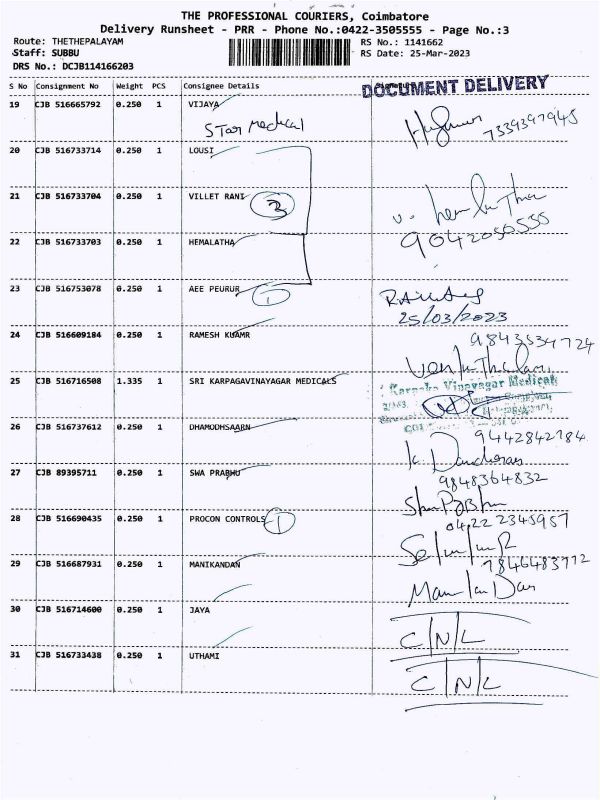 THE PROFESSIONAL COURIERS, Coimbatore
Delivery Runsheet - PRR - Phone No.:0422-3505555 - Page No.:3
Route: THETHEPALAYAM
RS No.: 1141662
Staff: SUBBU
RS Date: 25-Mar-2023
DRS No.: DCJB114166203
S No Consignment No Weight PCS Consignee Details
DOCUMENT DELIVERY
19 CJB 516665792 0.250 1 VIJAYA
Star Medical
7339397945
20 CJB 516733714 0.250 1 LOUSI
21 CJB 516733704 0.250 1 VILLET RANI
3
9042050555
22 CJB 516733703 0.250 1 HEMALATHA
23 CJB 516753078 0.250 1 AEE PEURUR
1
25/03/2023
24 CJB 516609184 0.250 1 RAMESH KUAMR
9843534724
25 CJB 516716508 1.335 1 SRI KARPAGAVINAYAGAR MEDICALS
Karpaka Vinayagar Medical
26 CJB 516737612 0.250 1 DHAMODHSAARN
9442842784
27 CJB 89395711 0.250 1 SWA PRABHU
9848364832
28 CJB 516690435 0.250 1 PROCON CONTROLS
1
0422 2345957
29 CJB 516687931 0.250 1 MANIKANDAN
7846483772
30 CJB 516714600 0.250 1 JAYA
C/N/L
31 CJB 516733438 0.250 1 UTHAMI
C/N/L